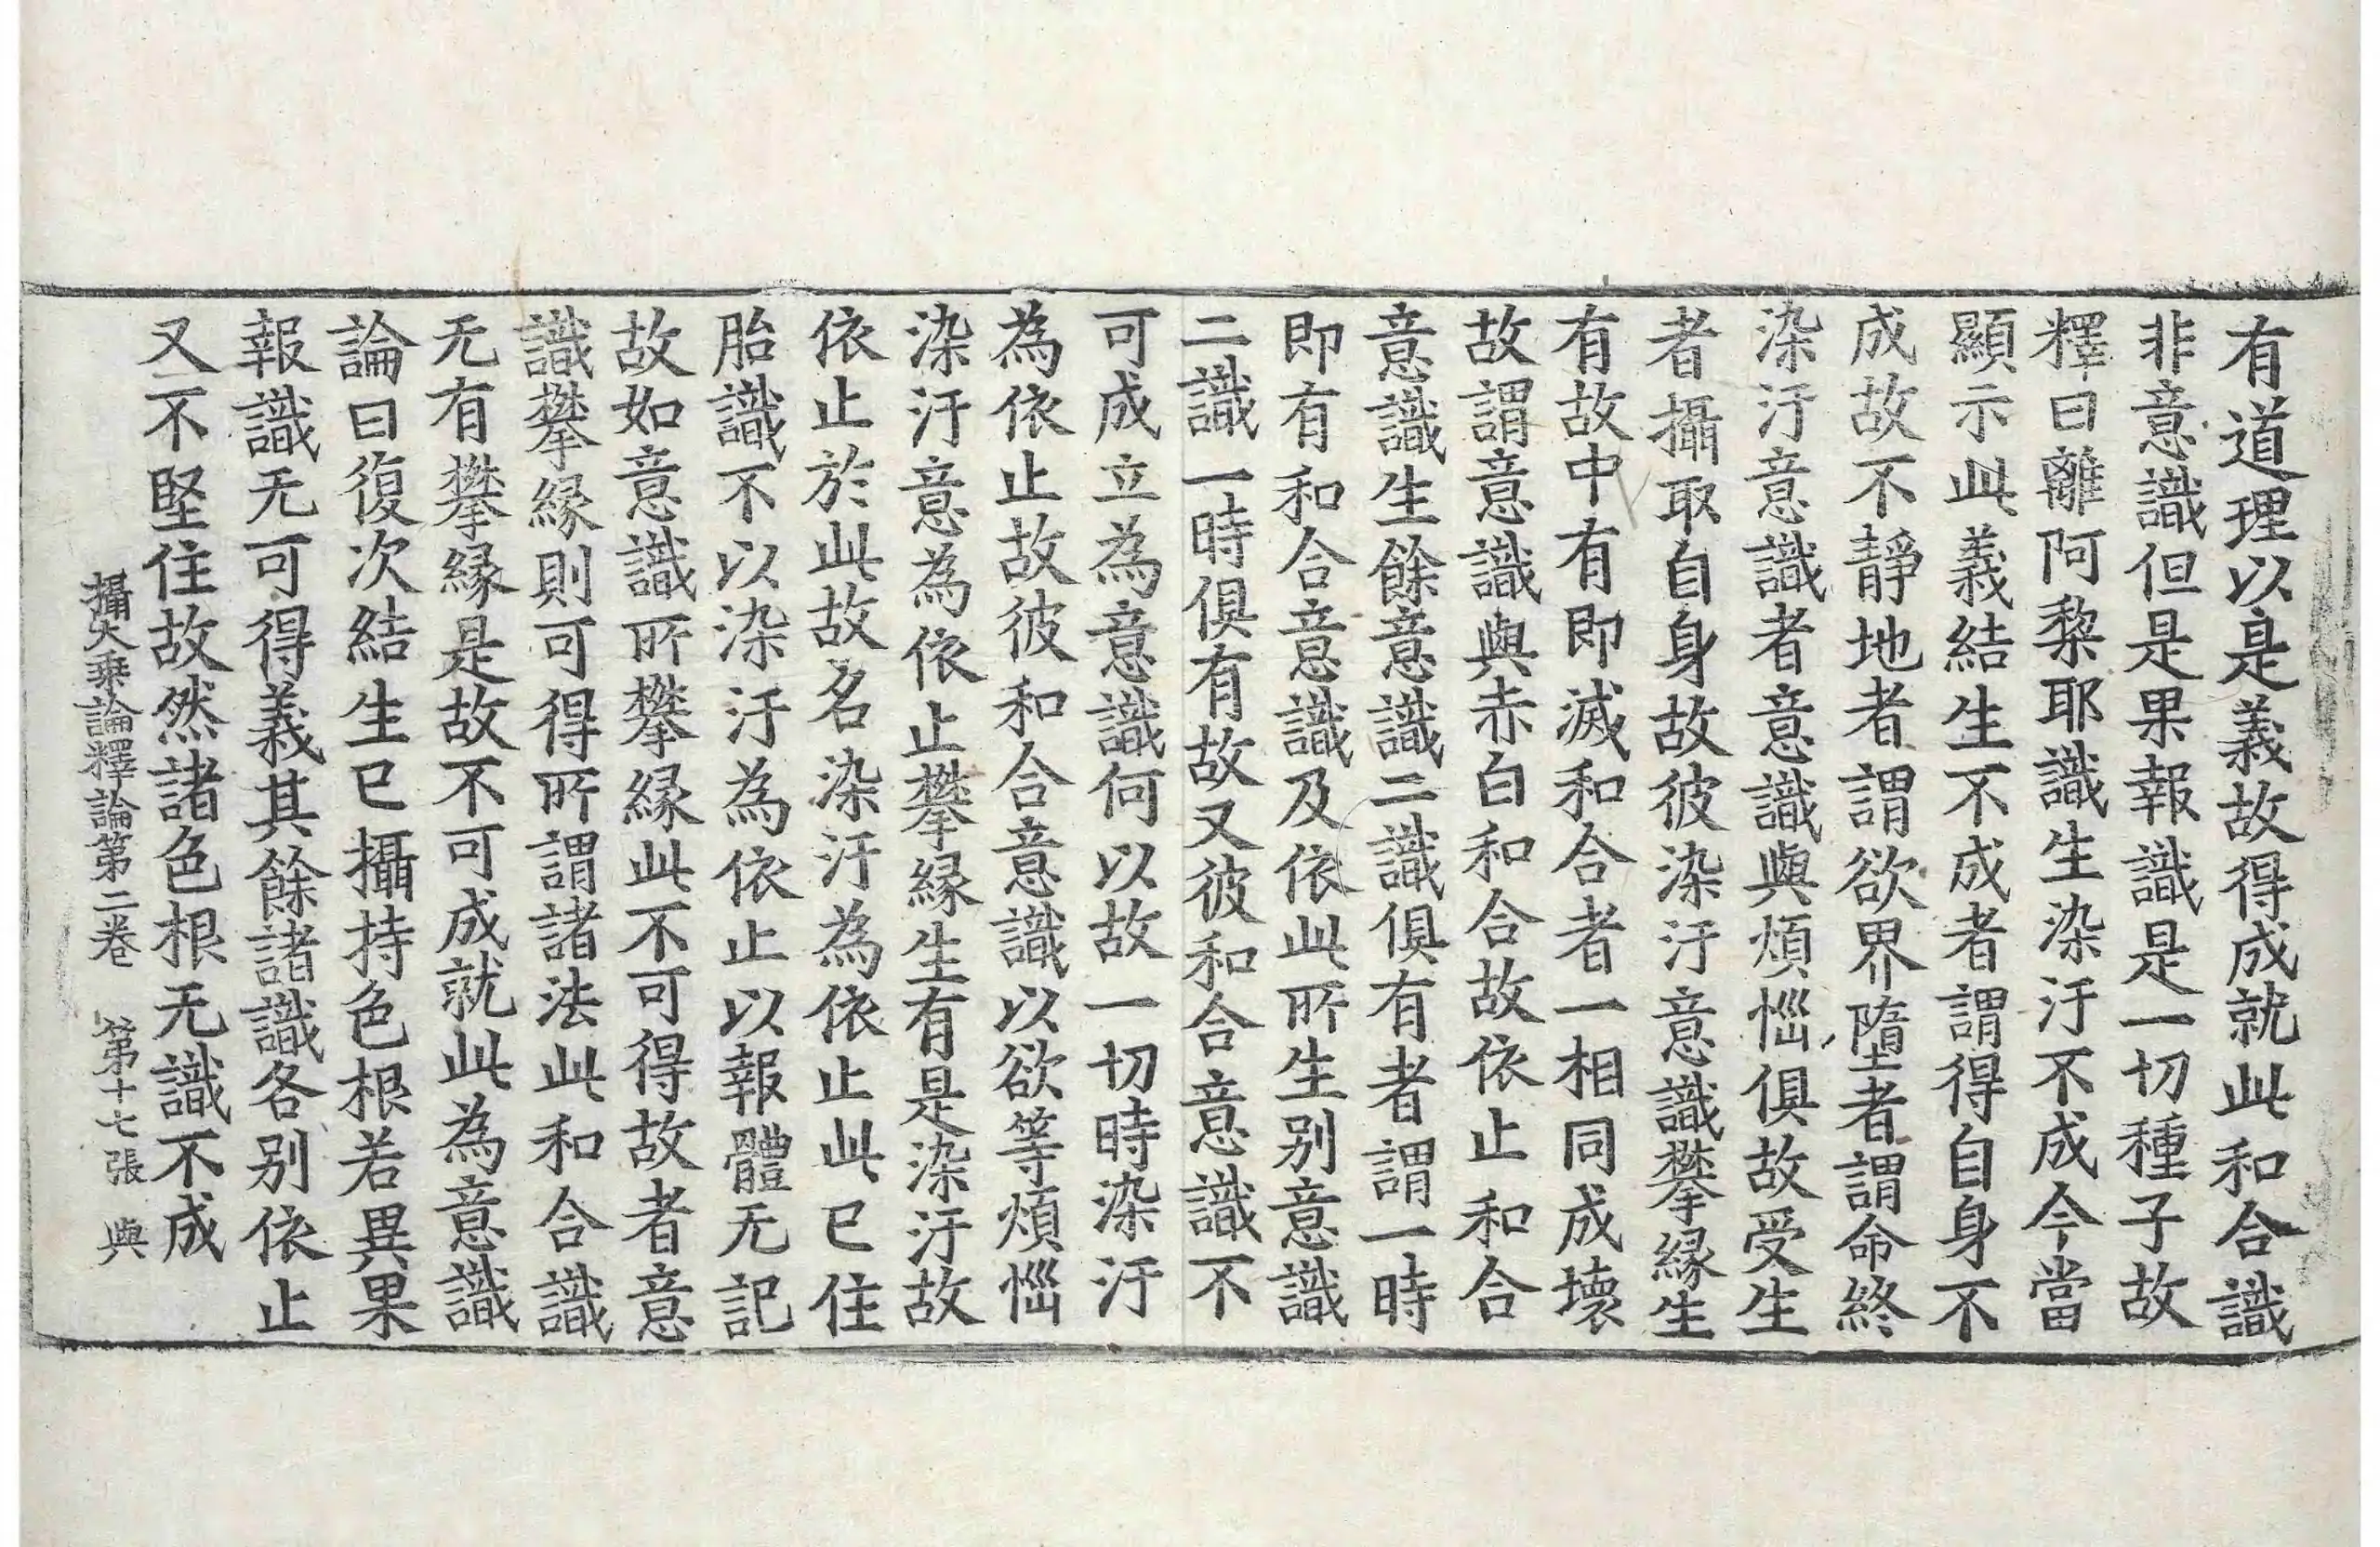 有道理以是義故得成就此和合識
非意識但是果報識是一切種子故
釋曰離阿黎耶識生染汙不成今當
顯示此義結生不成者謂得自身不
成故不靜地者謂欲界墮者謂命終
染汙意識者意識與煩惱俱故受生
者攝取自身故彼染汙意識攀緣生
有故中有即滅和合者一相同成壞
故謂意識與赤白和合故依止和合
意識生餘意識二識俱有者謂一時
即有和合意識及依此所生別意識
二識一時俱有故又彼和合意識不
可成立為意識何以故一切時染汙
為依止故彼和合意識以欲等煩惱
染汙意為依止攀緣生有是染汙故
依止於此故名染汙為依止此已住
胎識不以染汙為依止以報體无記
故如意識所攀緣此不可得故者意
識攀緣則可得所謂諸法此和合識
无有攀緣是故不可成就此為意識
論曰復次結生已攝持色根若異果
報識无可得義其餘諸識各別依止
又不堅住故然諸色根无識不成
攝大乘論釋論第二卷　第十七張　與